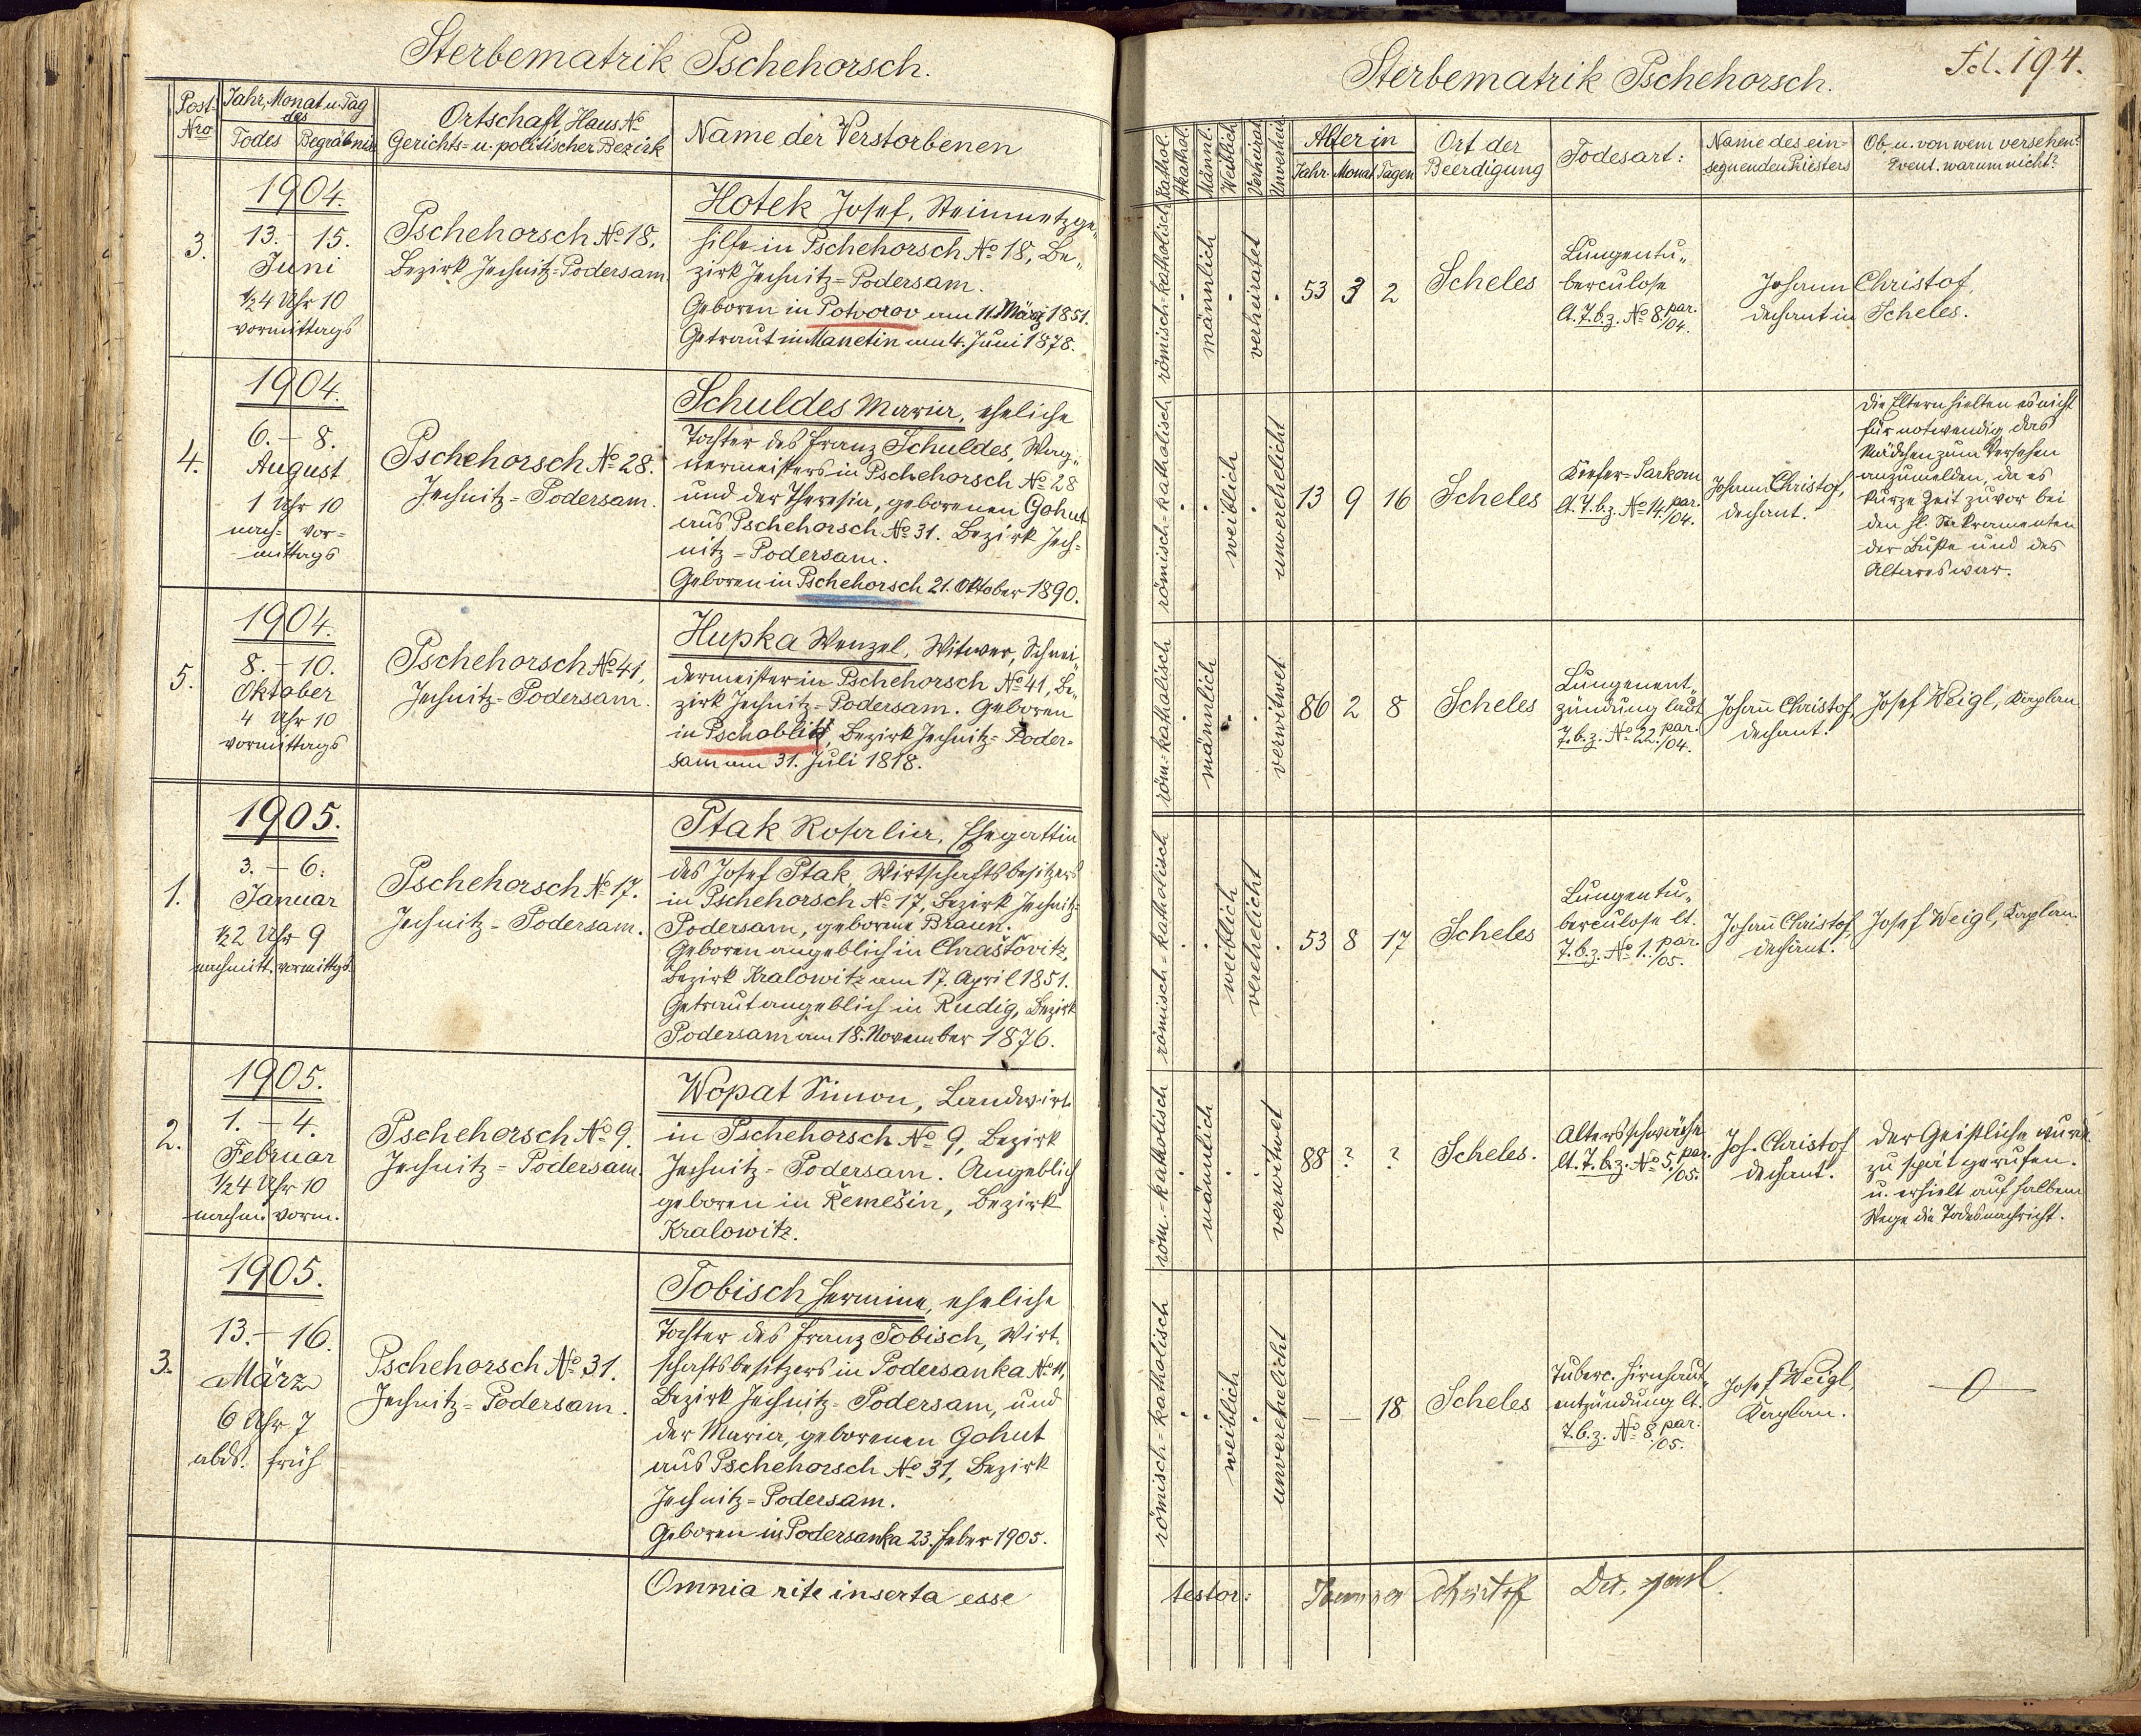 Sterbematrik Pschehorsch.
Post-
Nro
Jahr, Monat u. Tag
des
Todes Begräbnis
Ortschaft, Haus №
Gerichts= u. politischer Bezirk
Name der Verstorbenen
3.
1904.
13. – 15.
Juni
½4 Uhr 10
vormittags
Pschehorsch № 18,
Bezirk Jechnitz=Podersam.
Hotek Josef, Steinmetzge„
hilfe in Pschehorsch № 18, Be„
zirk Jechnitz=Podersam.
Geboren in Potvorov am 11. März 1851.
Getraut in Manetin am 4. Juni 1878.
4.
1904.
6. – 8.
August
1 Uhr 10
nach= vor=
mittags
Pschehorsch № 28.
Jechnitz=Podersam.
Schuldes Maria, eheliche
Tochter des Franz Schuldes, Wag„
nermeisters in Pschehorsch № 28
und der Theresia, geborenen Gohut
aus Pschehorsch № 31. Bezirk Jech=
nitz=Podersam.
Geboren in Pschehorsch 21. Oktober 1890.
5.
1904.
8. – 10.
Oktober
4 Uhr 10
vormittags
Pschehorsch № 41,
Jechnitz=Podersam.
Hupka Wenzel, Witwer, Schnei„
dermeister in Pschehorsch № 41, Be„
zirk Jechnitz=Podersam. Geboren
in Pschoblitz, Bezirk Jechnitz=Poder=
sam am 31. Juli 1818.
1.
1905.
3. – 6.
Januar
½2 Uhr 9
nachmitt. vormittgs.
Pschehorsch № 17.
Jechnitz=Podersam.
Ptak Rosalia, Ehegattin
des Josef Ptak, Wirtschaftsbesitzers
in Pschehorsch № 17, Bezirk Jechnitz=
Podersam, geborene Braun.
Geboren angeblich in Chraštovitz,
Bezirk Kralowitz am 17. April 1851.
Getraut angeblich in Rudig, Bezirk
Podersam am 18. November 1876.
2.
1905.
1. – 4.
Februar
½4 Uhr 10
nachm. vorm.
Pschehorsch № 9.
Jechnitz=Podersam.
Wopat Simon, Landwirt
in Pschehorsch № 9, Bezirk
Jechnitz=Podersam. Angeblich
geboren in Řemešin, Bezirk
Kralowitz.
3.
1905.
13. – 16.
März
6 Uhr 7
abds. früh
Pschehorsch № 31.
Jechnitz=Podersam.
Tobisch Hermine, eheliche
Tochter des Franz Tobisch, Wirt„
schaftsbesitzers in Podersanka № 11,
Bezirk Jechnitz=Podersam, und
der Maria, geborenen Gohut
aus Pschehorsch № 31, Bezirk
Jechnitz=Podersam.
Geboren in Podersanka 23. Feber 1905.
Omnia rite inserta esse
Sterbematrik Pschehorsch.
Fol. 194.
Kathol.
Akathol.
Männl.
Weiblich
Verheirat.
Unverheir.
Alter in
Jahr. Monat Tagen
Ort der
Beerdigung
Todesart:
Name des ein=
segnenden Priesters
Ob, u. von wem versehen?
Event. warum nicht?
römisch=katholisch
männlich
verheiratet
53 3 2
Scheles
Lungentu„
berculose
lt. T.b.z. № 8 par./04.
Johann Christof,
Dechant in Scheles.
römisch=katholisch
weiblich
unverehelicht
13 9 16
Scheles
Kiefer-Sarkom
lt. T.b.z. № 14 par./04.
Johann Christof,
Dechant.
Die Eltern hielten es nicht
für notwendig das
Mädchen zum Versehen
anzumelden, da es
kurze Zeit zuvor bei
den hl. Sakramenten
der Buße und des
Altares war.
röm=katholisch
männlich
verwitwet
86 2 8
Scheles
Lungenent„
zündung laut
T.b.z. № 22 par./04.
Johañ Christof,
Dechant.
Josef Weigl, Kaplan
römisch=katholisch
weiblich
verehelicht
53 8 17
Scheles
Lungentu„
berculose lt.
T.b.z. № 1. par./05.
Johañ Christof,
Dechant.
Josef Weigl, Kaplan.
röm.=katholisch
männlich
verwitwet
88 ? ?
Scheles.
Altersschwäche
lt. T.b.z. № 5 par./05.
Joh. Christof
Dechant.
Der Geistliche wurde
zu spät gerufen.
u. erhielt auf halbem
Wege die Todesnachricht.
römisch=katholisch
weiblich
unverehelicht
– – 18
Scheles
Tuberc. Hirnhaut„
entzündung lt.
T.b.z. № 8 par./05.
Josef Weigl,
Kaplan.
–0–
testor: Joannes Christof